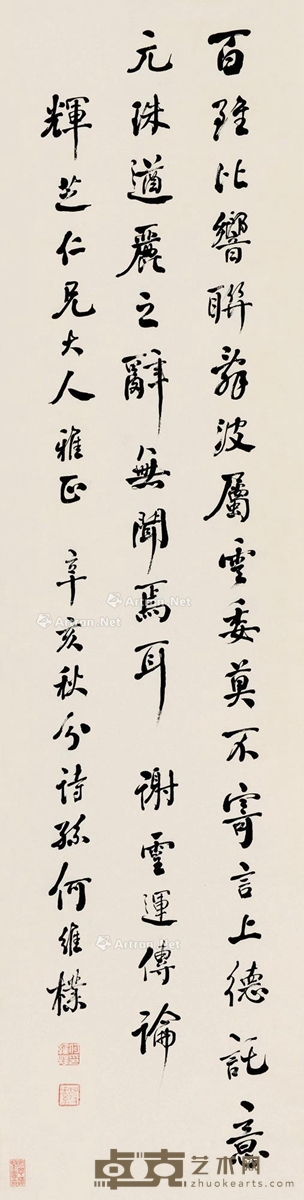 百雖比響聯辭波屬雲委莫不寄言上德託意
元珠遒麗之辭無聞焉耳 謝靈運傳論
輝芝仁兄大人雅正 辛亥秋分詩孫何維樸
Artron.Net
Artron.Net
Artron.Net
Artron.Net
卓克艺术网
www.zhuokearts.com